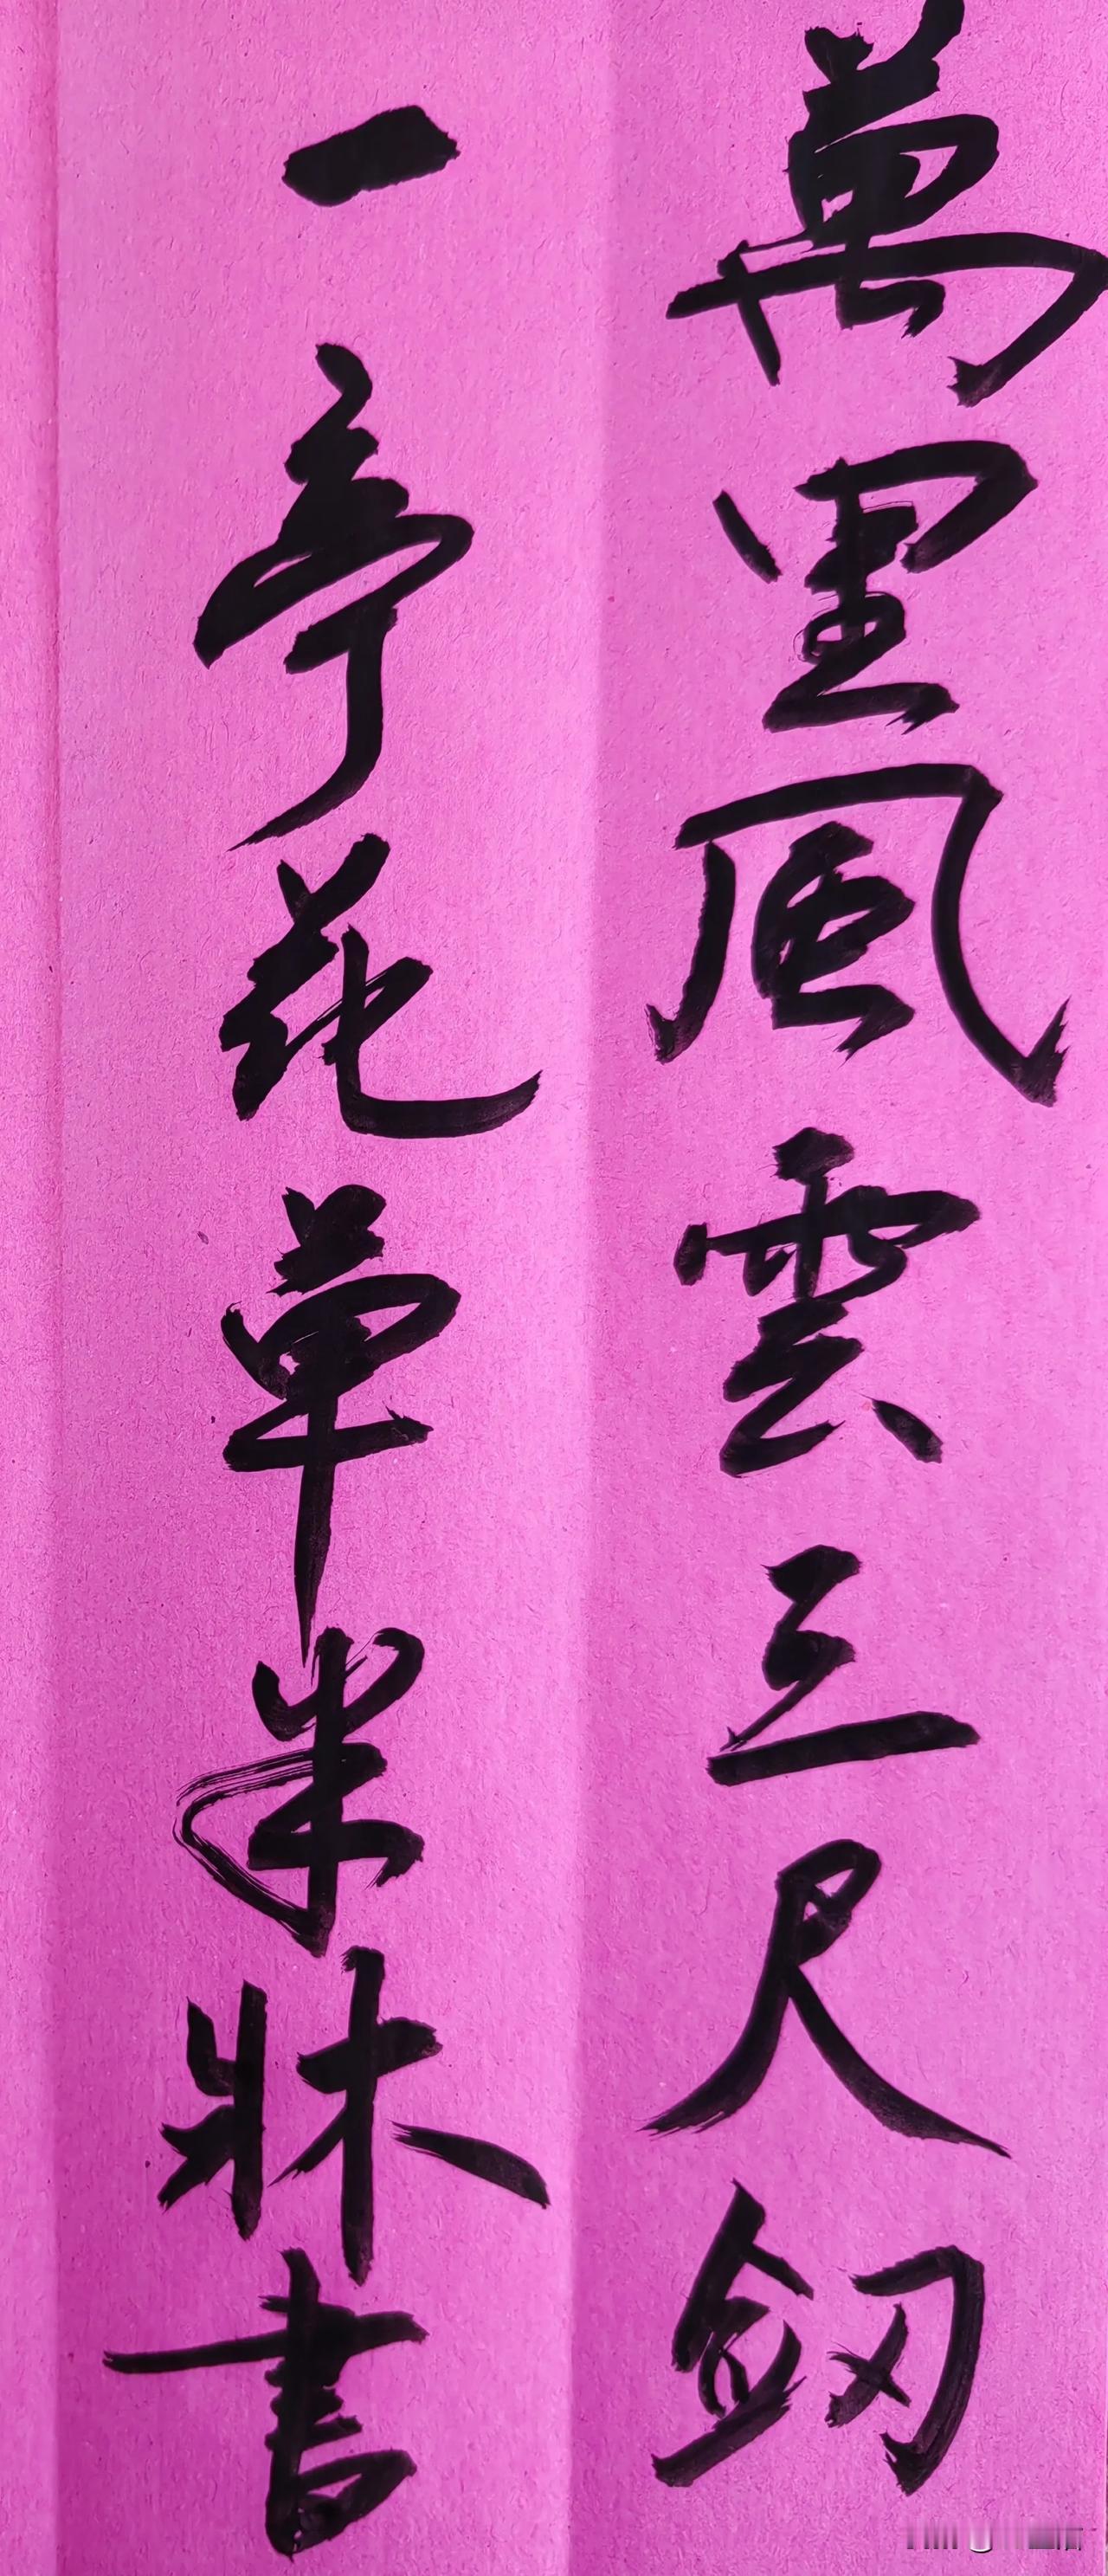 萬里風雲三尺劔
一亭花草半牀書